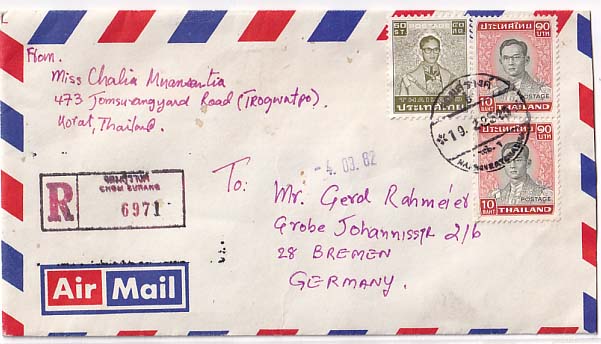 From.
Miss Chalia Muansantia
473 Jomsurangyard Road (TROGWATPO).
Korat, Thailand.
50 ST. ๕๐ สต.
THAILAND
ประเทศไทย
ประเทศไทย ๑๐ บาท
POSTAGE
10 BAHT THAILAND
ประเทศไทย ๑๐ บาท
POSTAGE
10 BAHT THAILAND
R
จอมสุรางค์
CHOM SURANG
6971
- 4. 03. 82
To:
Mr. Gerd Rahmeier
Grobe Johannisstr 216
28 BREMEN
GERMANY.
Air Mail